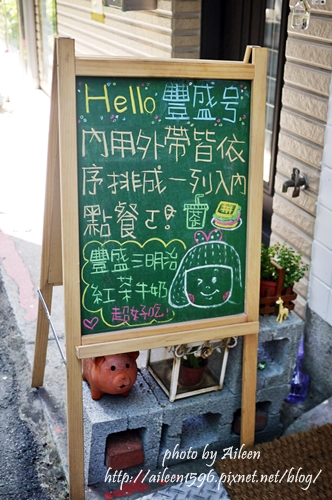 Hello 豐盛号
內用外帶皆依
序排成一列入內
點餐ㄛ!
豐盛三明治
紅茶牛奶
超好吃!
photo by Aileen
http://aileen1596.pixnet.net/blog/